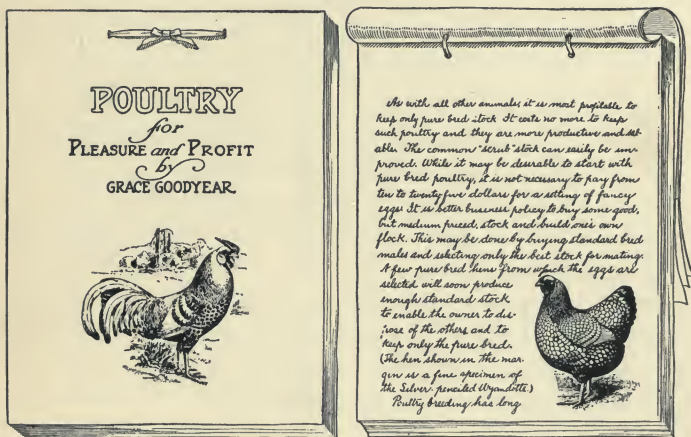 POULTRY
for
PLEASURE and PROFIT
by
GRACE GOODYEAR
As with all other animals, it is most profitable to
keep only pure bred stock. It costs no more to keep
such poultry and they are more productive and sal-
able. The common "scrub" stock can easily be im-
proved. While it may be desirable to start with
pure bred poultry, it is not necessary to pay from
ten to twenty five dollars for a setting of fancy
eggs. It is better business policy to buy some good,
but medium priced, stock and build one's own
flock. This may be done by buying standard bred
males and selecting only the best stock for mating.
A few pure bred hens from which the eggs are
selected will soon produce
enough standard stock
to enable the owner to dis-
pose of the others and to
keep only the pure bred.
(The hen shown in the mar-
gin is a fine specimen of
the Silver penciled Wyandotte.)
Poultry breeding has long